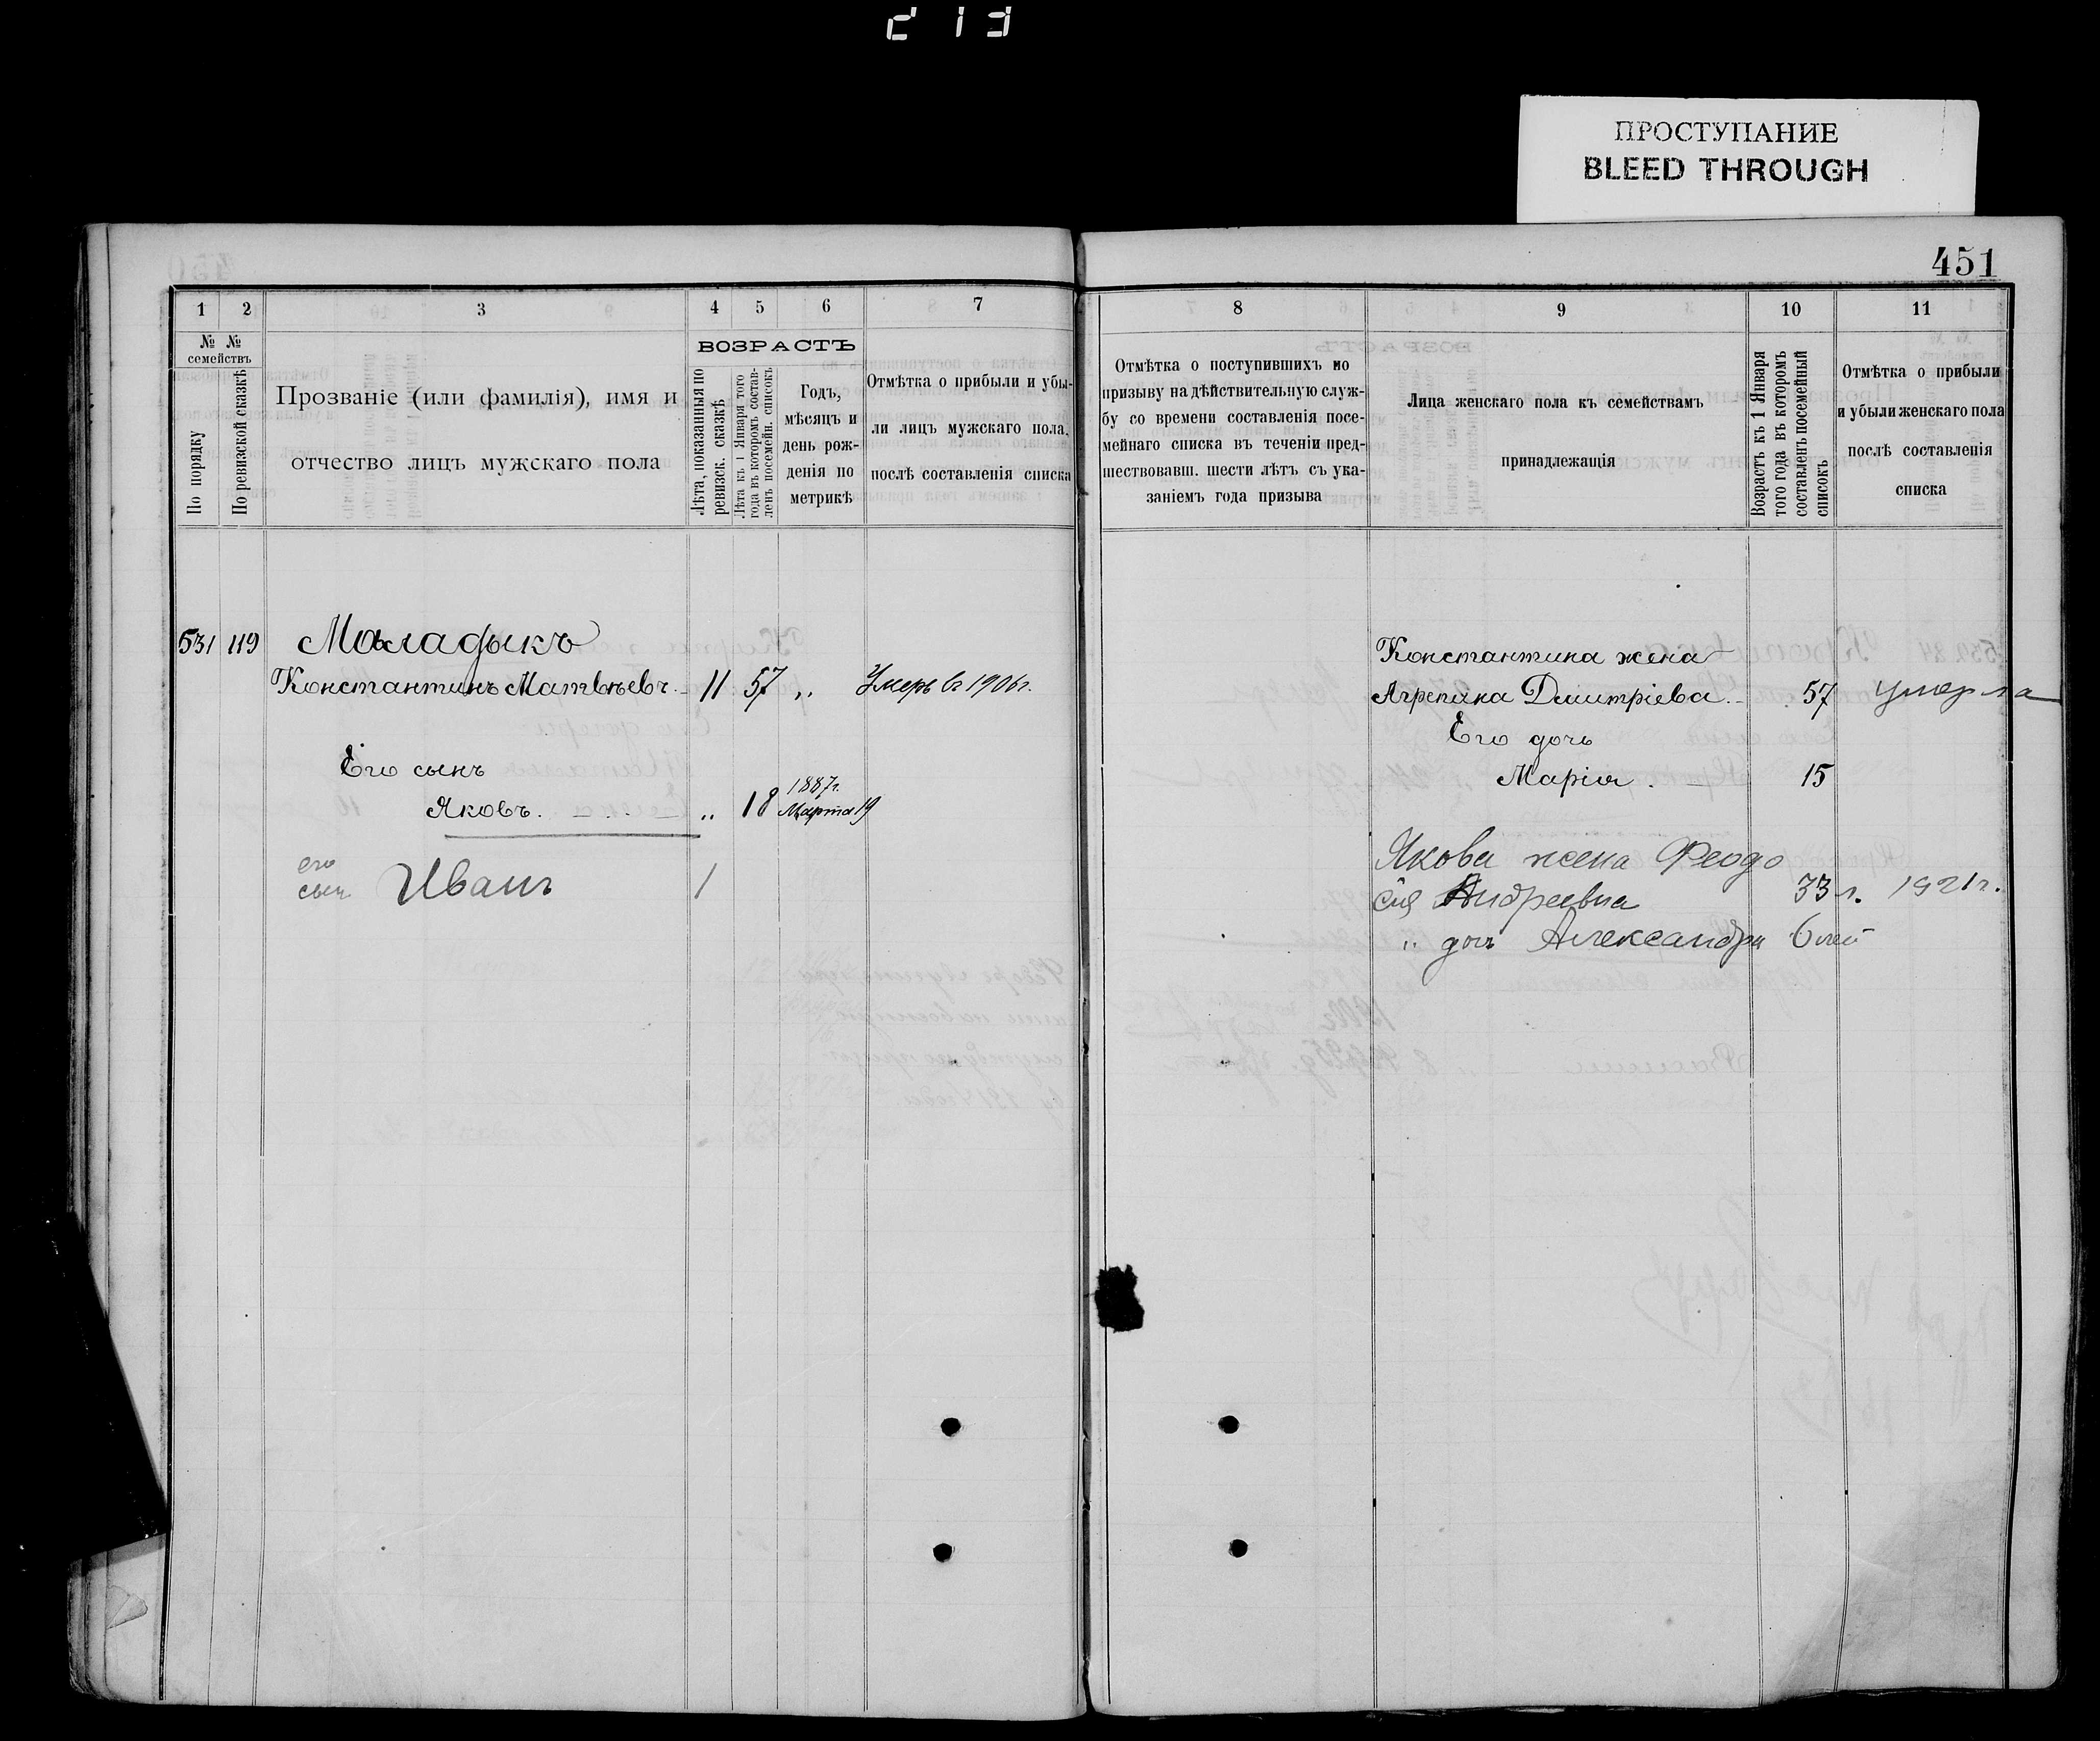 213
ПРОСТУПАНИЕ
BLEED THROUGH
451
1 2 3 4 5 6 7 8 9 10 11
№ №
семействъ
По порядку
По ревизской сказкѣ
Прозваніе (или фамилія), имя и
отчество лицъ мужскаго пола
ВОЗРАСТЪ
Лѣта, показанныя по
ревизск. сказкѣ
Лѣта къ 1 Января того
года въ которомъ состав-
ленъ посемейн. списокъ
Годъ,
мѣсяцъ и
день рож-
денія по
метрикѣ
Отмѣтка о прибыли и убы-
ли лицъ мужскаго пола,
послѣ составленія списка
Отмѣтка о поступившихъ по
призыву на дѣйствительную служ-
бу со времени составленія посе-
мейнаго списка въ теченіи пред-
шествовавш. шести лѣтъ съ ука-
заніемъ года призыва
Лица женскаго пола къ семействамъ
принадлежащія
Возрастъ къ 1 Января
того года въ которомъ
составленъ посемейный
списокъ
Отмѣтка о прибыли
и убыли женскаго пола
послѣ составленія
списка
531 119 Маладыкъ
Константинъ Матвѣевъ. 11 57 „ Умеръ въ 1906 г.
Его сынъ
1887 г.
Яковъ. „ 18 Марта 19
его
сынъ Иванъ 1
Константина жена
Агрепина Дмитріева. 57 умерла
Его дочь
Марія. 15
Якова жена Феодо
сія Андреевна 33 г. 1921 г.
„ дочь Александра 6 лет